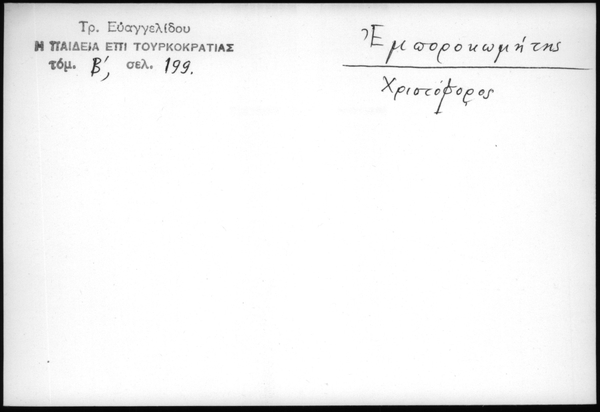 Τρ. Εὐαγγελίδου
Η ΠΑΙΔΕΙΑ ΕΠΙ ΤΟΥΡΚΟΚΡΑΤΙΑΣ
τόμ. Β΄, σελ. 199.
Ἐμποροκωμήτης
Χριστόφορος